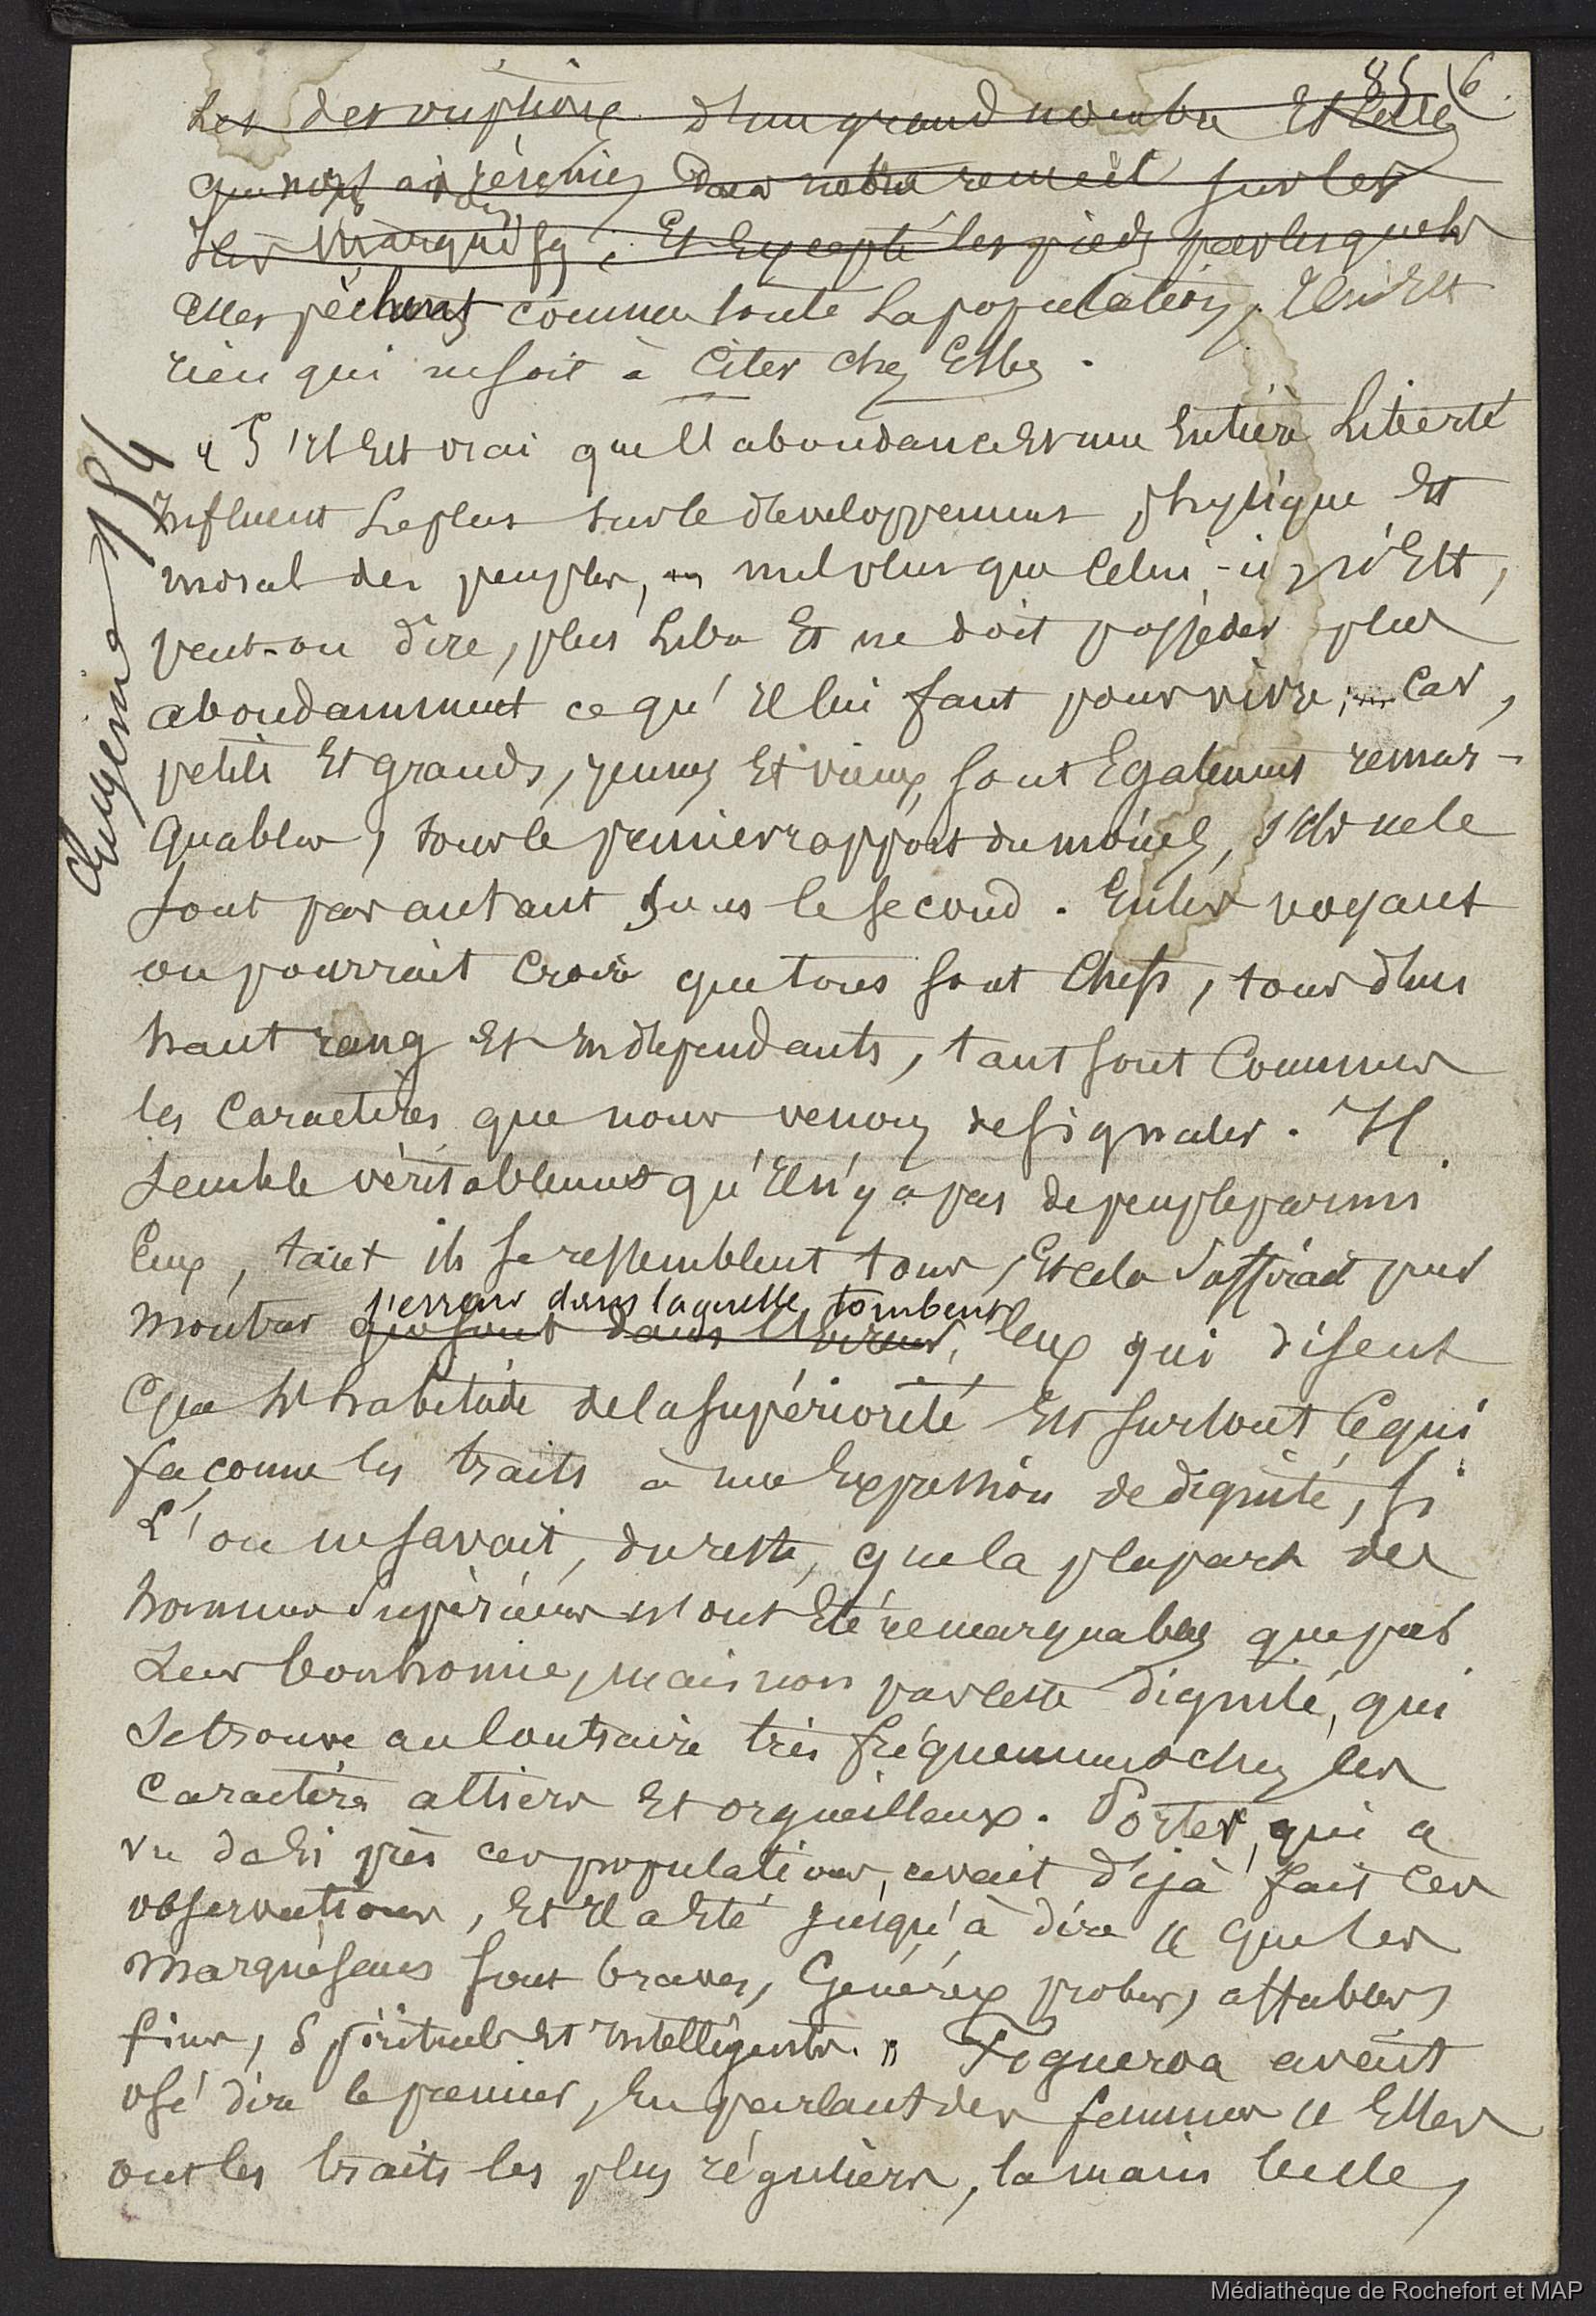 85 6
Les descriptions d'un grand nombre Et celle
que nous a réunies dans notre recueil sur les
Iles Marquises, Et Excepté les pieds par lesquels
Elles pêchent comme toute la population, Il n'Est
rien qui ne soit à citer chez Elles.
« S'il Est vrai que l'abondance Et une Entière Liberté
Influent le plus sur le développement physique Et
moral des peuples, nul plus que celui-ci n'Est,
peut-on dire, plus libre Et ne doit posséder plus
abondamment ce qu'Il lui faut pour vivre, Car,
petits Et grands, jeunes Et vieux, sont Egalement remar-
quables, sous le premier rapport du moins, s'Ils ne le
sont pas autant sous le second. En les voyant
on pourrait croire que tous sont Chefs, tous d'un
haut rang Et Indépendants, tant sont Communs
les Caractères que nous venons de signaler. Il
semble véritablement qu'Il n'y a pas de peuple parmi
Eux, tant ils se ressemblent tous, Et cela suffirait pour
l'erreur dans laquelle tombent
montrer que sont dans l'Erreur, Ceux qui disent
Que l'habitude de la supériorité Est surtout Ce qui
façonne les traits à une Expression de dignité, si
L'on ne savait, du reste, que la plupart des
hommes supérieurs n'ont Eté remarquables que par
Leur bonhomie, mais non par cette dignité, qui
se trouve au Contraire très fréquemment chez les
Caractères altiers Et orgueilleux. Porter, qui a
vu de si près ces populations, avait déjà fait Ces
observations, Et Il a Eté jusqu'à dire « Que les
Marquésans sont braves, Généreux probes, affables,
fins, spirituels Et Intelligents. » Figueroa avait
osé dire le premier, En parlant des femmes « Elles
ont les traits les plus réguliers, la main belle,
154
Médiathèque de Rochefort et MAP